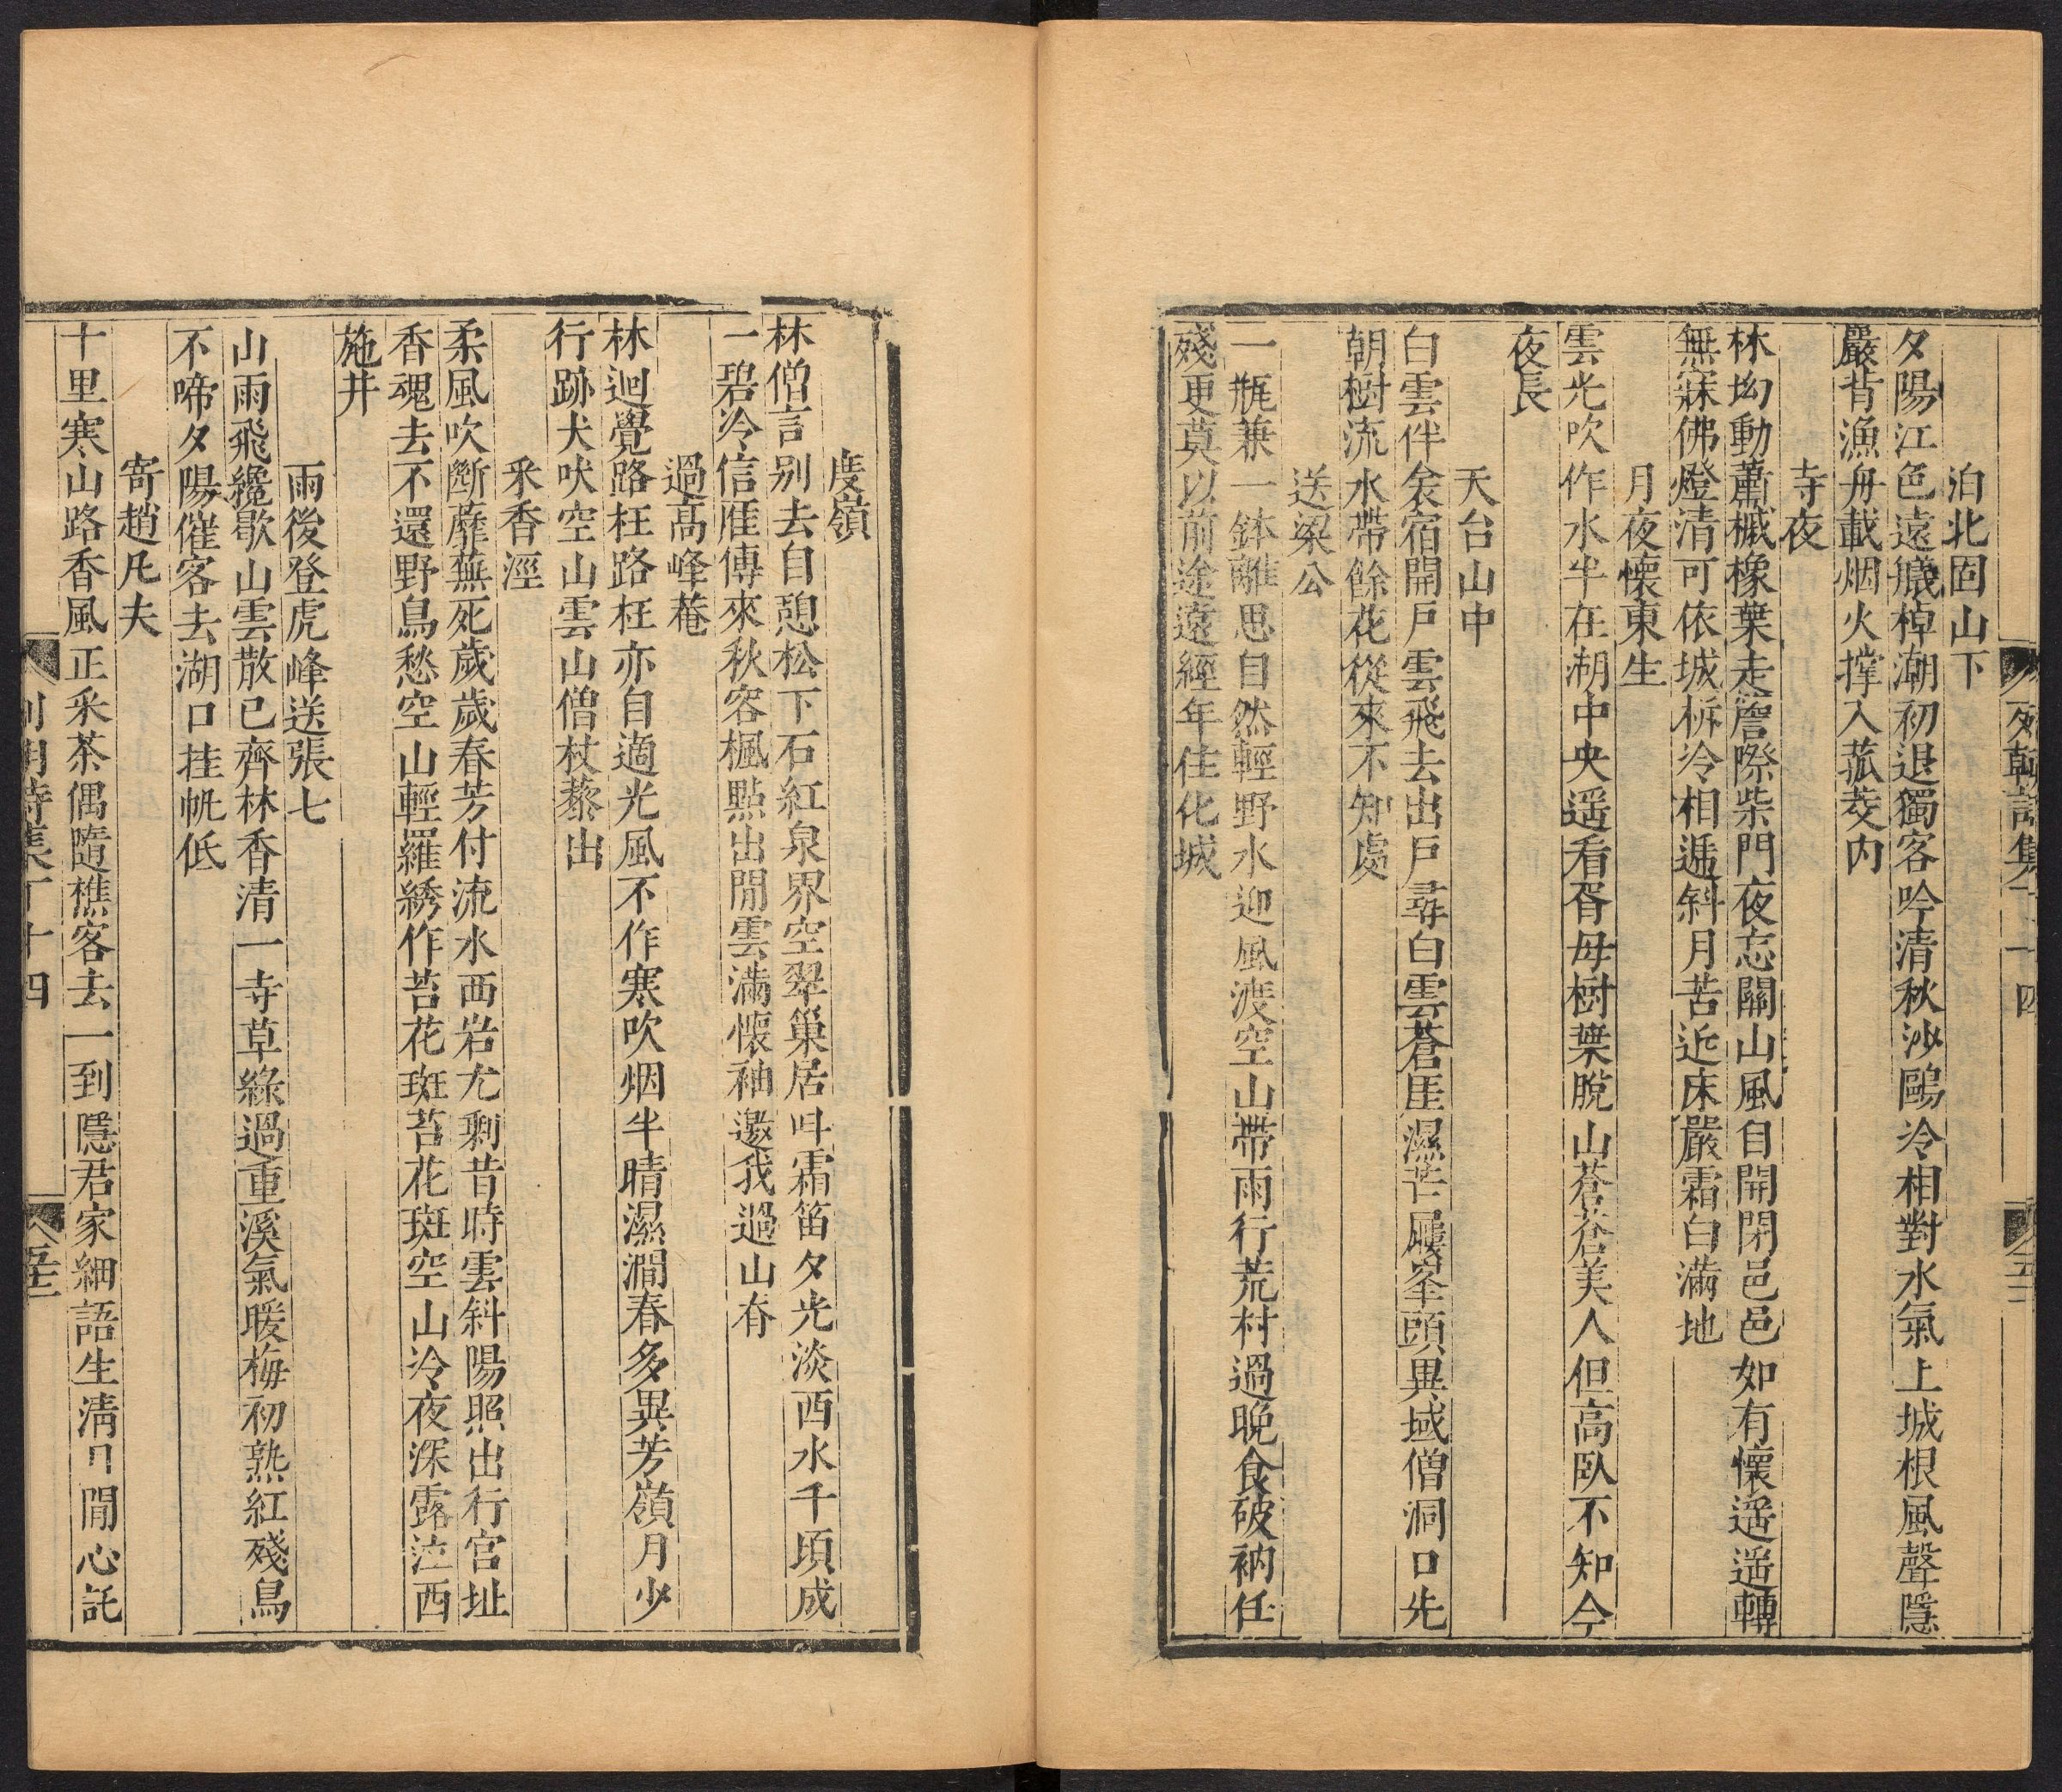 列朝詩集丁十四
泊北固山下
夕陽江色遠艤棹潮初退獨客吟清秋沙鷗冷相對水氣上城根風聲隱
嚴背漁舟載烟火撑入菰茭内
寺夜
林坳動蕭槭橡葉走詹際柴門夜忘關山風自開閉邑邑如有懷遥遥轉
無寐佛燈清可依城柝冷相遞斜月苦近床嚴霜白滿地
月夜懷東生
雲光吹作水半在湖中央遥看胥母樹葉脫山蒼蒼美人但高臥不知今
夜長
天台山中
白雲伴余宿開戶雲飛去出戶尋白雲蒼厓濕芒屨峯頭異域僧洞口先
朝樹流水帶餘花從來不知處
送梁公
一瓶兼一鉢離思自然輕野水迎風渡空山帶雨行荒村過晚食破衲任
殘更莫以前途遠經年住化城
度嶺
林僧言别去自憩松下石紅泉界空翠巢居叫霜笛夕光淡西水千頃成
一碧冷信厓傳來秋客楓點出閒雲滿懷袖邀我過山脊
過高峰菴
林迴覺路枉路枉亦自適光風不作寒吹烟半晴濕澗春多異芳嶺月少
行跡犬吠空山雲山僧杖藜出
采香涇
柔風吹斷蘼蕪死歲歲春芳付流水西岩尤剩昔時雲斜陽照出行宫址
香魂去不還野鳥愁空山輕羅綉作苔花斑苔花斑空山冷夜深露泣西
施井
雨後登虎峰送張七
山雨飛纔歇山雲散已齊林香清一寺草綠過重溪氣暖梅初熟紅殘鳥
不啼夕陽催客去湖口挂帆低
寄趙凡夫
十里寒山路香風正采茶偶隨樵客去一到隱君家細語生清日閒心託
列朝詩集丁十四